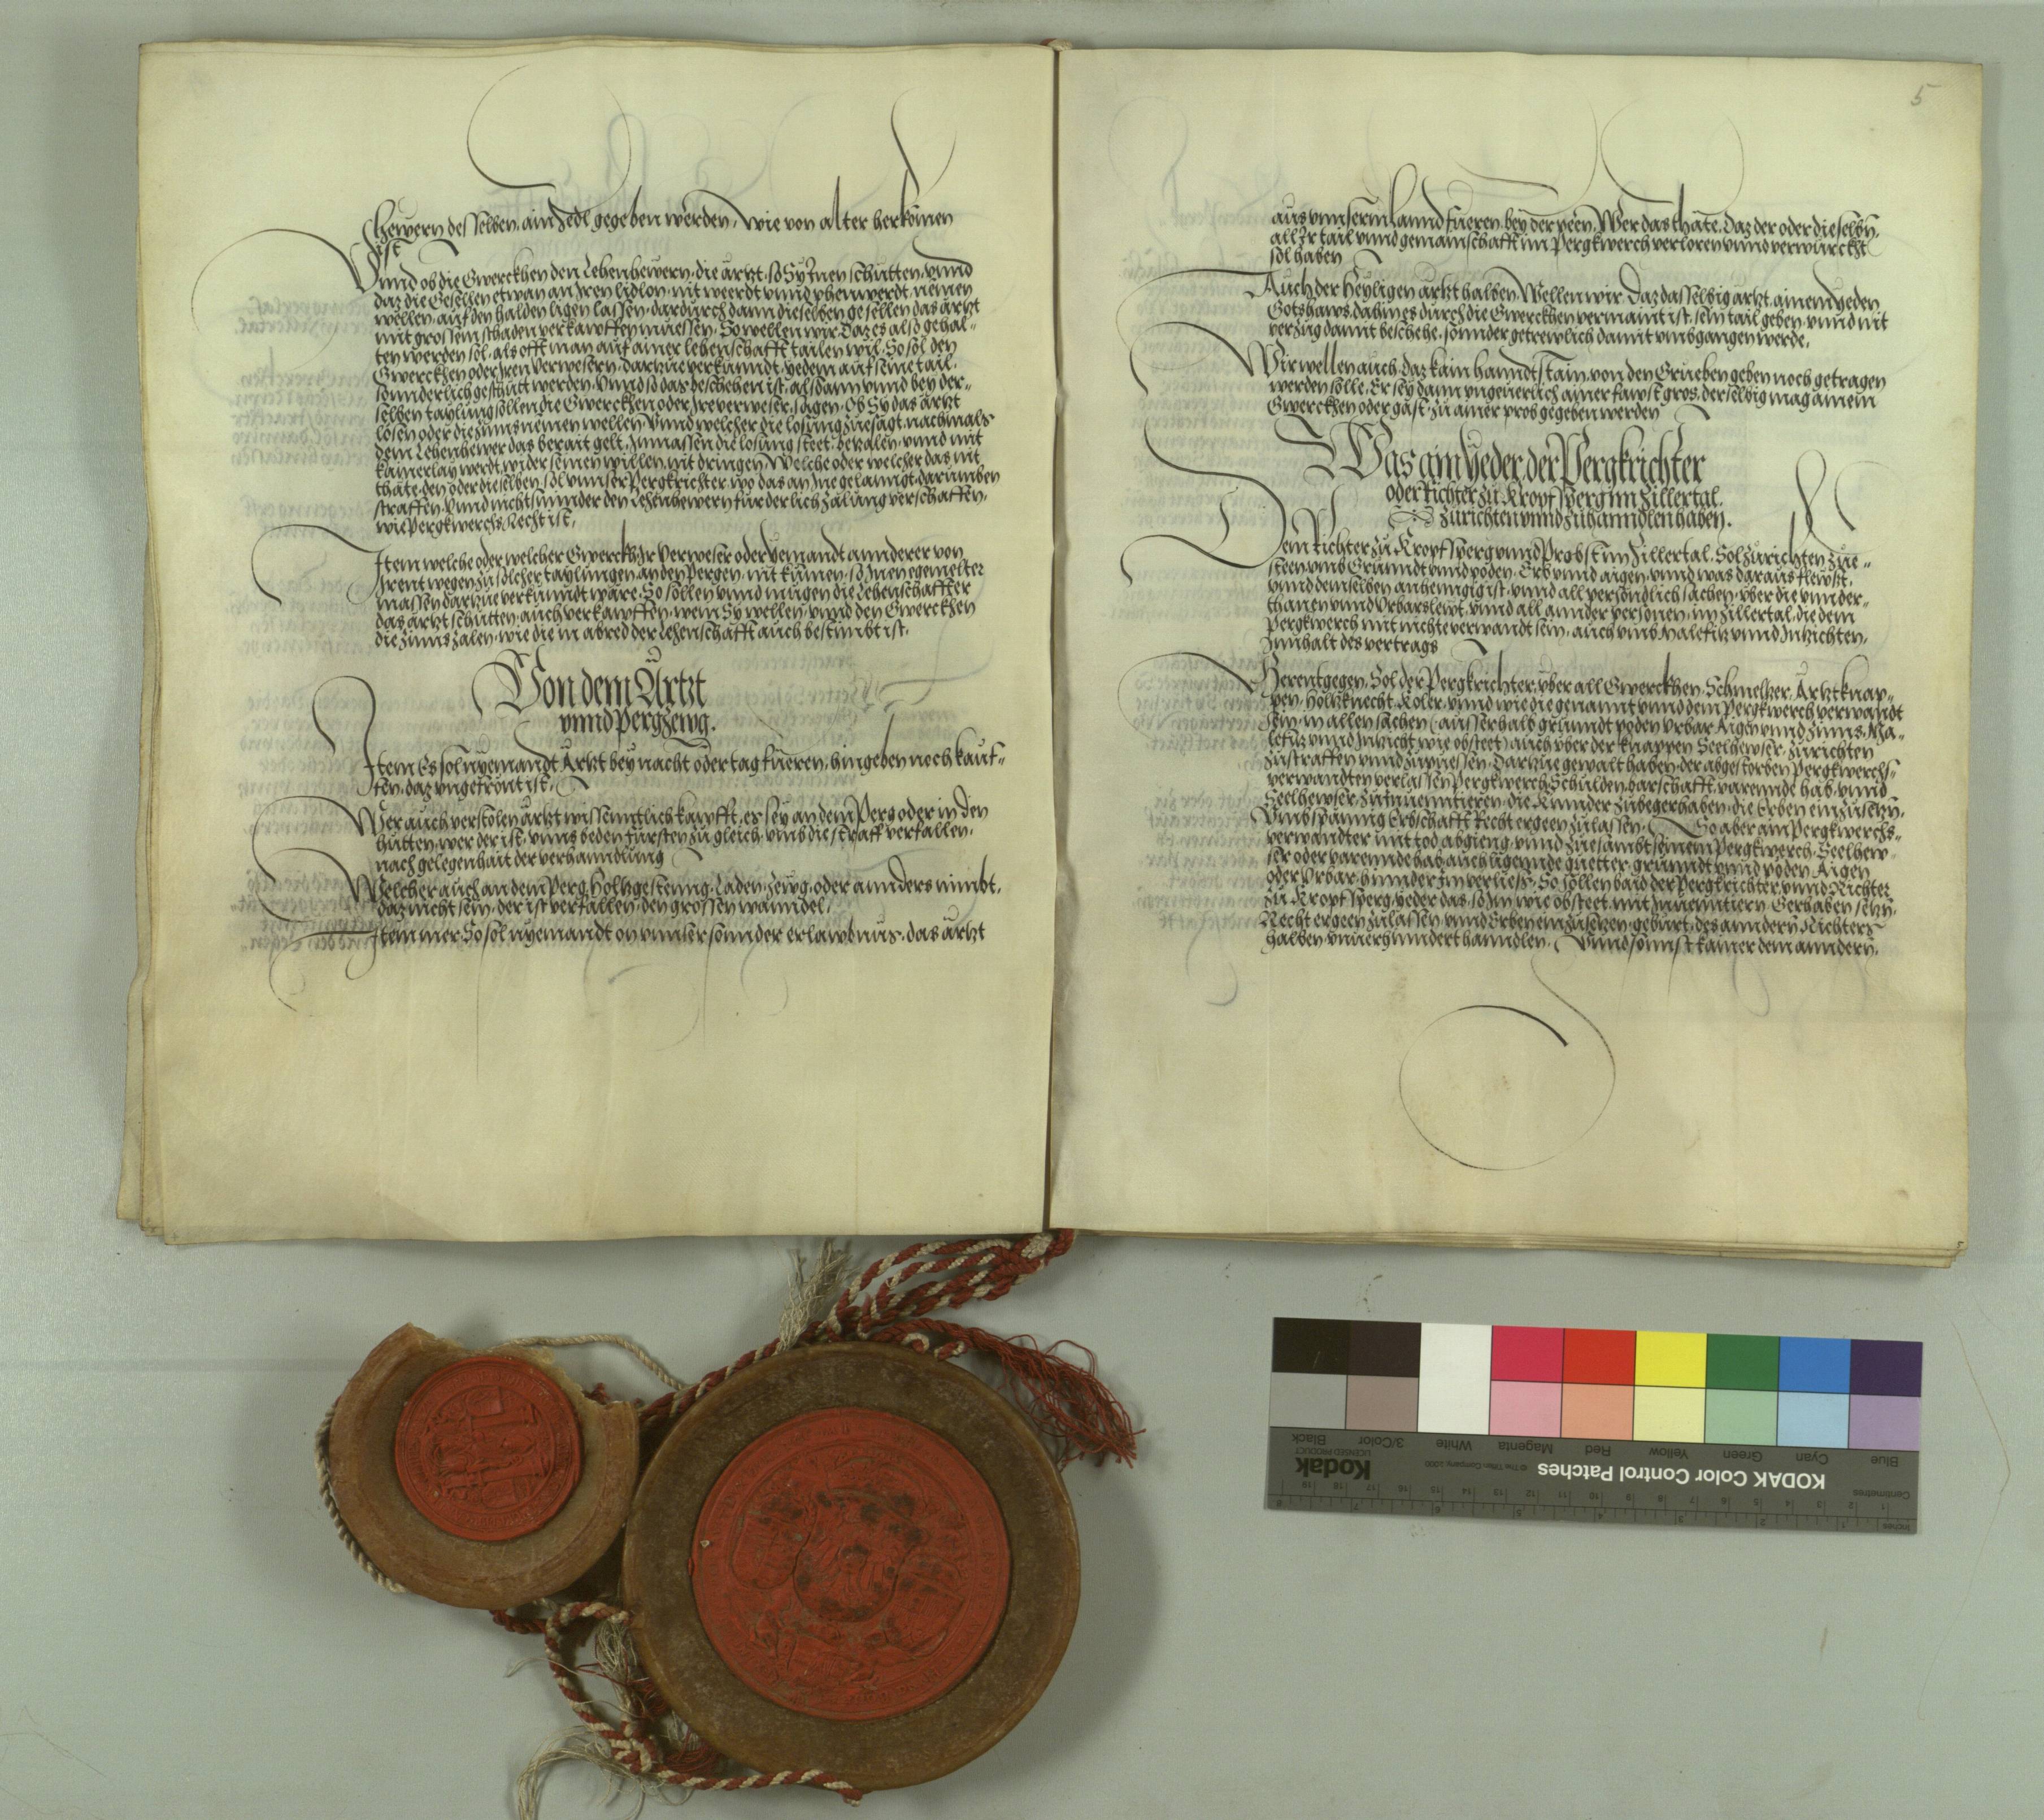 hewern desselben, ain Zedl gegeben werden, wie von alter herkomen
ist
Vnnd ob die Gwerckhen den Lehenhewern, die ärtzt, so Sy Inen schutten, vnnd
daz die Gesellen etwan an Iren lidlon, nit weerdt vnnd phenwerdt, nemen
wellen, auf den halden ligen lassen, dardurch dann dieselben gesellen das ärtzt
mit grossem schaden verkawffen muessen, So wellen wir, Daz es also gehal-
ten werden sol, als offt man auf ainer lehenschafft tailen wil, So sol den
Gwerckhen oder Iren Verwesern, dartzue verkunndt, yedem auf seine tail,
sonnderlich geschutt werden, Vnnd so das beschehen ist, alsdann vnnd bey der-
selben taylung sollen die Gwerckhen oder Ire verweser, sagen, Ob Sy das ärtzt
lösen oder die zinns nemen wellen, Vnnd welcher die losung zuesagt, nachmals
dem Lehenhewer das berait gelt, Inmassen die losung steet, betzalen, vnnd mit
kainerlay werdt, wider seinen willen, nit dringen, Welche oder welcher das nit
thäte, den oder dieselben, sol vnnser Pergkrichter, wo das an Ine gelanngt, darumben
straffen, Vnnd nichtsmynnder den Lehenhewern furderlich zalung verschaffen,
wie Pergkwerchs Recht ist,
Item welche oder welcher Gwerckh, Ir Verweser oder yemandt annderer von
Irent wegen zu solcher taylungen, an den Pergen, nit kumen, so Inen egemelter
massen dartzue verkunndt wäre, So sollen vnnd mugen die Lehenschaffter
das ärtzt schutten, auch verkawffen, wem Sy wellen, vnnd den Gwerckhen
die zinns zalen, wie die in abred der Lehenschafft auch bestimbt ist,
Von dem Ärtzt
vnnd Pergzewg.
Item Es sol nyemandt Ärtzt bey nacht oder tag fueren, hingeben noch kauf-
fen, daz ungefrönt ist,
Wer auch verstolen ärtzt wissenntlich kawfft, es sey an dem Perg oder in den
hutten, wer der ist, vnns beden Fürsten zu gleich, vmb die straff verfallen,
nach gelegenhait der verhanndlung
Welcher auch an dem Perg, Holtz, gestenng, Laden, Zewg, oder annders nimbt,
daz nicht sein, der ist verfallen, den grossen wanndel,
Item mer, So sol nyemandt on vnnser sonnder erlawbnus, das ärtzt
5
aus vnnserm Lannd fueren, bey der peen, Wer das thäte, Daz der oder dieselbn,
all Ir tail vnnd gemainschafft im Pergkwerch verloren vnnd verwürckht
sol haben
Auch der Heyligen ärtzt halben Wellen wir, Daz dasselbig ärtzt, ainem yeden
Gotshaws, dahin es durch die Gwerckhen vermaint ist, sein tail geben, vnnd nit
verzug damit beschehe, sonnder getrewlich damit vmbganngen werde,
Wir wellen auch, daz kain hanndtstain, von den Grueben geben noch getragen
werden solle, Er sey dann vngeuerlich ainer fawst gros, derselbig mag ainem
Gwerckhen oder gast, zu ainer prob gegeben werden
Was ain yeder, der Pergkrichter
oder Richter zu Kropfsperg im Zillertal,
zurichten vnnd zuhanndlen haben.
Dem Richter zu Kropfsperg vnnd Probst im Zillertal, Sol zurichten zue-
steen vmb Grunndt vnnd poden, Erb vnnd aigen, vnnd was daraus flewsst,
vnnd demselben anhenngig ist, vnnd all persöndlich sachen, vber die vnnder-
thanen vnnd Vrbarslewt, vnnd all annder personen, im Zillertal, die dem
Pergkwerch mit nichte verwandt sein, auch vmb Malefitz vnnd Intzichten,
Innhalt des vertrags
Herentgegen, Sol der Pergkrichter, vber all Gwerckhen, Schmeltzer, Ärtzknap-
pen, Holtzknecht, Koler, vnnd wie die genannt vnnd dem Pergkwerch verwandt
sein, in allen sachen (ausserhalb grunndt poden Vrbar Aigen vnnd zinns, Ma-
lefitz vnnd Intzicht, wie obsteet) auch vber der knappen Seelhewser, zurichten
zustraffen vnnd zupuessen, Dartzue gewalt haben, der abgestorben Pergkwerchs-
verwandten verlassen Pergkwerch, Schulden, parschafft, varennde hab, vnnd
Seelhewser, zuInuentieren, die Kinnder zubegerhaben, die Erben einzusetzn,
Vmb spännig Erbschafft Recht ergeen zulassen, So aber ain Pergkwerchs-
verwandter mit tod abgieng, vnnd zuesambt seinem Pergkwerch, Seelhew-
ser oder varennde hab, auch ligennde guetter, grunndt vnnd poden, Aigen
oder Vrbar, hinnder Im verliess, So sollen baid der Pergkrichter, vnnd Richter
zu Kropfsperg, yeder das, so Im wie obsteet, mit Inuentiern, Gerhaben setzn,
Recht ergeen zulassen, vnnd Erben einzusetzen, gebürt, des anndern Richters
halben, vnuerhinndert hanndlen, Vnnd sonnst kainer dem anndern,
KODAK Color Control Patches
Kodak
LICENSED PRODUCT
© The Tiffen Company, 2000
Blue
Cyan
Green
Yellow
Red
Magenta
White
3/Color
Black
Centimetres
Inches